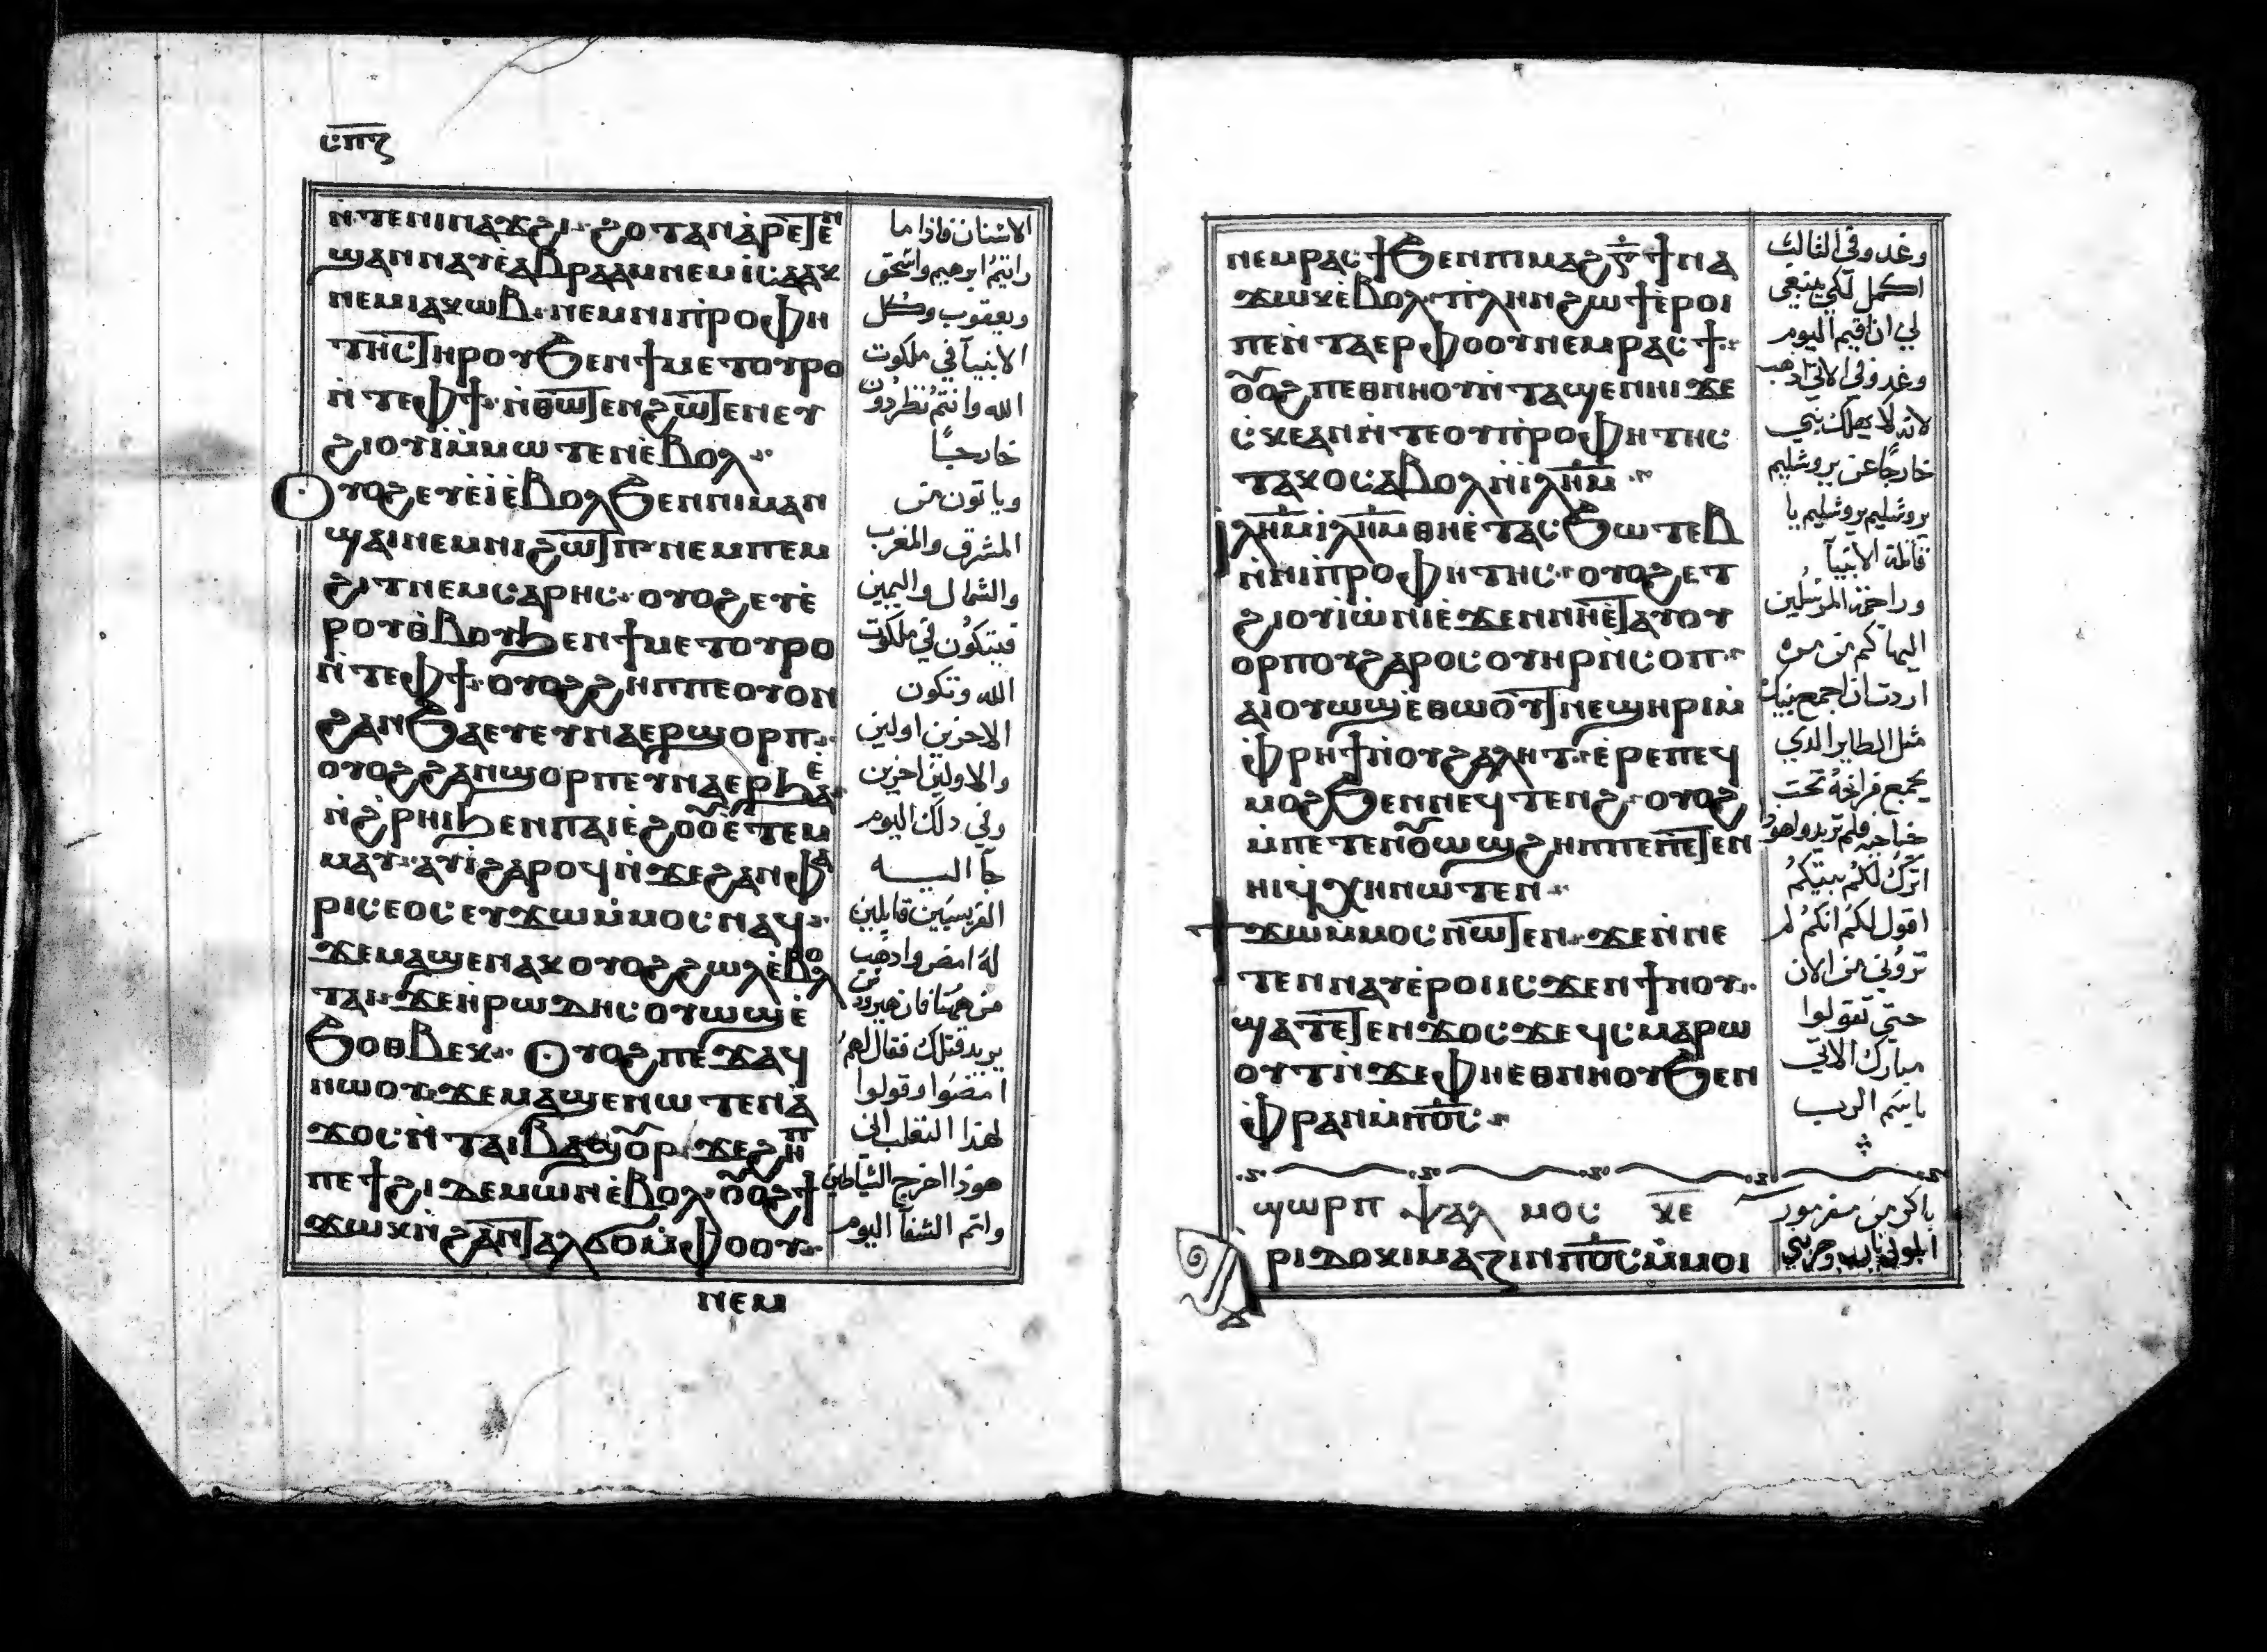 ⲥⲡⲍ
ⲛ̀ⲧⲉⲛⲓⲛⲁϫϩⲓ· ϩⲟⲧⲁⲛ ⲁⲣⲉⲧⲉⲛ
ϣⲁⲛⲛⲁⲩ ⲉ̀ⲁⲃⲣⲁⲁⲙ ⲛⲉⲙ ⲓⲥⲁⲁⲕ
ⲛⲉⲙ ⲓⲁⲕⲱⲃ· ⲛⲉⲙ ⲛⲓⲡⲣⲟⲫⲏ
ⲧⲏⲥ ⲧⲏⲣⲟⲩ ϧⲉⲛ ϯⲙⲉⲧⲟⲩⲣⲟ
ⲛ̀ⲧⲉ ⲫϯ· ⲛ̀ⲑⲱⲧⲉⲛ ϩⲱⲧⲉⲛ ⲉⲩ
ϩⲓⲟⲩⲓ̀ ⲙ̀ⲙⲱⲧⲉⲛ ⲉ̀ⲃⲟⲗ·
Ⲟⲩⲟϩ ⲉⲩⲉ̀ⲓ̀ ⲉ̀ⲃⲟⲗ ϧⲉⲛ ⲛⲓⲙⲁⲛ
ϣⲁⲓ ⲛⲉⲙ ⲛⲓϩⲱⲧⲡ· ⲛⲉⲙ ⲡⲉⲙ
ϩⲓⲧ ⲛⲉⲙ ⲥⲁⲣⲏⲥ· ⲟⲩⲟϩ ⲉⲩⲉ̀
ⲣⲟⲩⲑ̀ⲃⲟⲩ ϧⲉⲛ ϯⲙⲉⲧⲟⲩⲣⲟ
ⲛ̀ⲧⲉ ⲫϯ· ⲟⲩⲟϩ ϩⲏⲡⲡⲉ ⲟⲩⲟⲛ
ϩⲁⲛ ϧⲁⲉⲩ ⲉⲩⲛⲁⲉⲣϣⲟⲣⲡ·
ⲟⲩⲟϩ ϩⲁⲛϣⲟⲣⲡ ⲉⲩⲛⲁⲉⲣϧⲁⲉ̀
ⲛ̀ϩ̀ⲣⲏⲓ ϧⲉⲛ ⲡⲁⲓⲉ̀ϩⲟⲟⲩ ⲉ̀ⲧⲉⲙ
ⲙⲁⲩ· ⲁⲩⲓ̀ ϩⲁⲣⲟϥ ⲛ̀ϫⲉ ϩⲁⲛⲫⲁ
ⲣⲓⲥⲉⲟⲥ ⲉⲩϫⲱ ⲙ̀ⲙⲟⲥ ⲛⲁϥ·
ϫⲉ ⲙⲁϣⲉⲛⲁⲕ ⲟⲩⲟϩ ϩⲱⲗ ⲉ̀ⲃⲟⲗ
ⲧⲁⲓ· ϫⲉ ⲏⲣⲱⲇⲏⲥ ⲟⲩⲱϣ ⲉ̀
ϧⲟⲑⲃⲉⲕ· Ⲟⲩⲟϩ ⲡⲉϫⲁϥ
ⲛⲱⲟⲩ· ϫⲉ ⲙⲁϣⲉⲛⲱⲧⲉⲛ ⲁ̀
ϫⲟⲥ ⲛ̀ⲧⲁⲓⲃⲁϣⲟⲣ· ϫⲉ ϩⲏⲡ
ⲡⲉ ϯϩⲓ ⲇⲉⲙⲱⲛ ⲉ̀ⲃⲟⲗ· ⲟⲩⲟϩ ϯ
ϫⲱⲕ ⲛ̀ϩⲁⲛⲧⲁⲗϭⲟ ⲙ̀ⲫⲟⲟⲩ·
ⲛⲉⲙ
الاسنان فاذا ما
رايتم ابرهيم واسحق
ويعقوب وكل
الانبيآ في ملكوت
الله وانتم تطردون
خارجًا
وياتون من
المشرق والمغرب
والشمال واليمين
فيتكون في ملكوت
الله وتكون
الاخرين اولين
والاولين اخرين
وفي دلك اليوم
جآ اليه
الفريسيين قايلين
له امض وادهب
من همنا فان هيرودس
يريد قتلك فقال لهم
امضوا وقولوا
لهذا الثعلب اني
هوذا اخرج الشياطين
واتم الشفآ اليوم
ⲛⲉⲙ ⲣⲁⲥϯ ϧⲉⲛ ⲡⲓⲙⲁϩⲅ̅ ϯⲛⲁ
ϫⲱⲕ ⲉ̀ⲃⲟⲗ· ⲡⲗⲏⲛ ϩⲱϯ ⲉ̀ⲣⲟⲓ
ⲡⲉ ⲛ̀ⲧⲁⲉⲣ ⲫⲟⲟⲩ ⲛⲉⲙ ⲣⲁⲥϯ·
ⲟⲩⲟϩ ⲡⲉⲑⲛⲏⲟⲩ ⲛ̀ⲧⲁϣⲉⲛⲏⲓ ϫⲉ
ⲥⲭⲉ ⲁⲛ ⲛ̀ⲧⲉ ⲟⲩⲡⲣⲟⲫⲏⲧⲏⲥ
ⲧⲁⲕⲟ ⲥⲁⲃⲟⲗ ⲛ̀ⲓⲗⲏⲙ·
Ⲓⲗⲏⲙ ⲓⲗⲏⲙ ⲑⲏⲉ̀ⲧⲁⲥϧⲱⲧⲉⲃ
ⲛ̀ⲛⲓⲡⲣⲟⲫⲏⲧⲏⲥ· ⲟⲩⲟϩ ⲉⲧ
ϩⲓⲟⲩⲓ̀ ⲱ̀ⲛⲓ ⲉ̀ϫⲉⲛ ⲛⲏⲉ̀ⲧⲁⲩⲟⲩ
ⲟⲣⲡⲟⲩ ϩⲁⲣⲟⲥ ⲟⲩⲏⲣ ⲛ̀ⲥⲟⲡ·
ⲁⲓⲟⲩⲱϣ ⲉ̀ⲑⲱⲟⲩϯ ⲛⲉϣⲏⲣⲓ ⲙ̀
ⲫⲣⲏϯ ⲛ̀ⲟⲩϩⲁⲗⲏⲧ· ⲉ̀ⲣⲉ ⲡⲉϥ
ⲙⲟϩ ϧⲉⲛ ⲛⲉϥⲧⲉⲛϩ· ⲟⲩⲟϩ
ⲙ̀ⲡⲉⲧⲉⲛⲟⲩⲱϣ ϩⲏⲡⲡⲉ ⲡⲉⲧⲉⲛ
ⲏⲓ ϥⲭⲏ ⲛⲱⲧⲉⲛ·
Ϯϫⲱ ⲙ̀ⲙⲟⲥ ⲛⲱⲧⲉⲛ· ϫⲉ ⲛ̀ⲛⲉ
ⲧⲉⲛⲛⲁⲩ ⲉ̀ⲣⲟⲓ ⲓⲥϫⲉⲛ ϯⲛⲟⲩ·
ϣⲁⲧⲉⲧⲉⲛϫⲟⲥ ϫⲉ ϥⲥⲙⲁⲣⲱ
ⲟⲩⲧ ⲛ̀ϫⲉ ⲫⲏⲉⲑⲛⲏⲟⲩ ϧⲉⲛ
ⲫⲣⲁⲛ ⲙ̀ⲡⲟ̅ⲥ̅·
ϣⲱⲣⲡ ⲯⲁⲗⲙⲟⲥ ⲕⲉ
ⲁⲣⲓⲇⲟⲕⲓⲙⲁⲍⲓⲛ ⲡⲟ̅ⲥ̅ ⲙ̀ⲙⲟⲓ
وغد وفي الثالث
اكمل لكي ينبغي
لي ان اقيم اليوم
وغد وفي الاتي اذهب
لانه لا يهلك نبي
خارجًا عن يروشليم
يروشليم يروشليم يا
قاتلة الانبيآ
وراجمة المرسلين
اليها كم من مره
اردت ان اجمع بنيك
مثل الطاير الدي
يجمع فراخه تحت
جناحيه فلم تريدوا هودا
اترك لكم بيتكم
اقول لكم انكم لم
تروني من الان
حتي تقولوا
مبارك الاتي
باسم الرب
باكر من مزمور